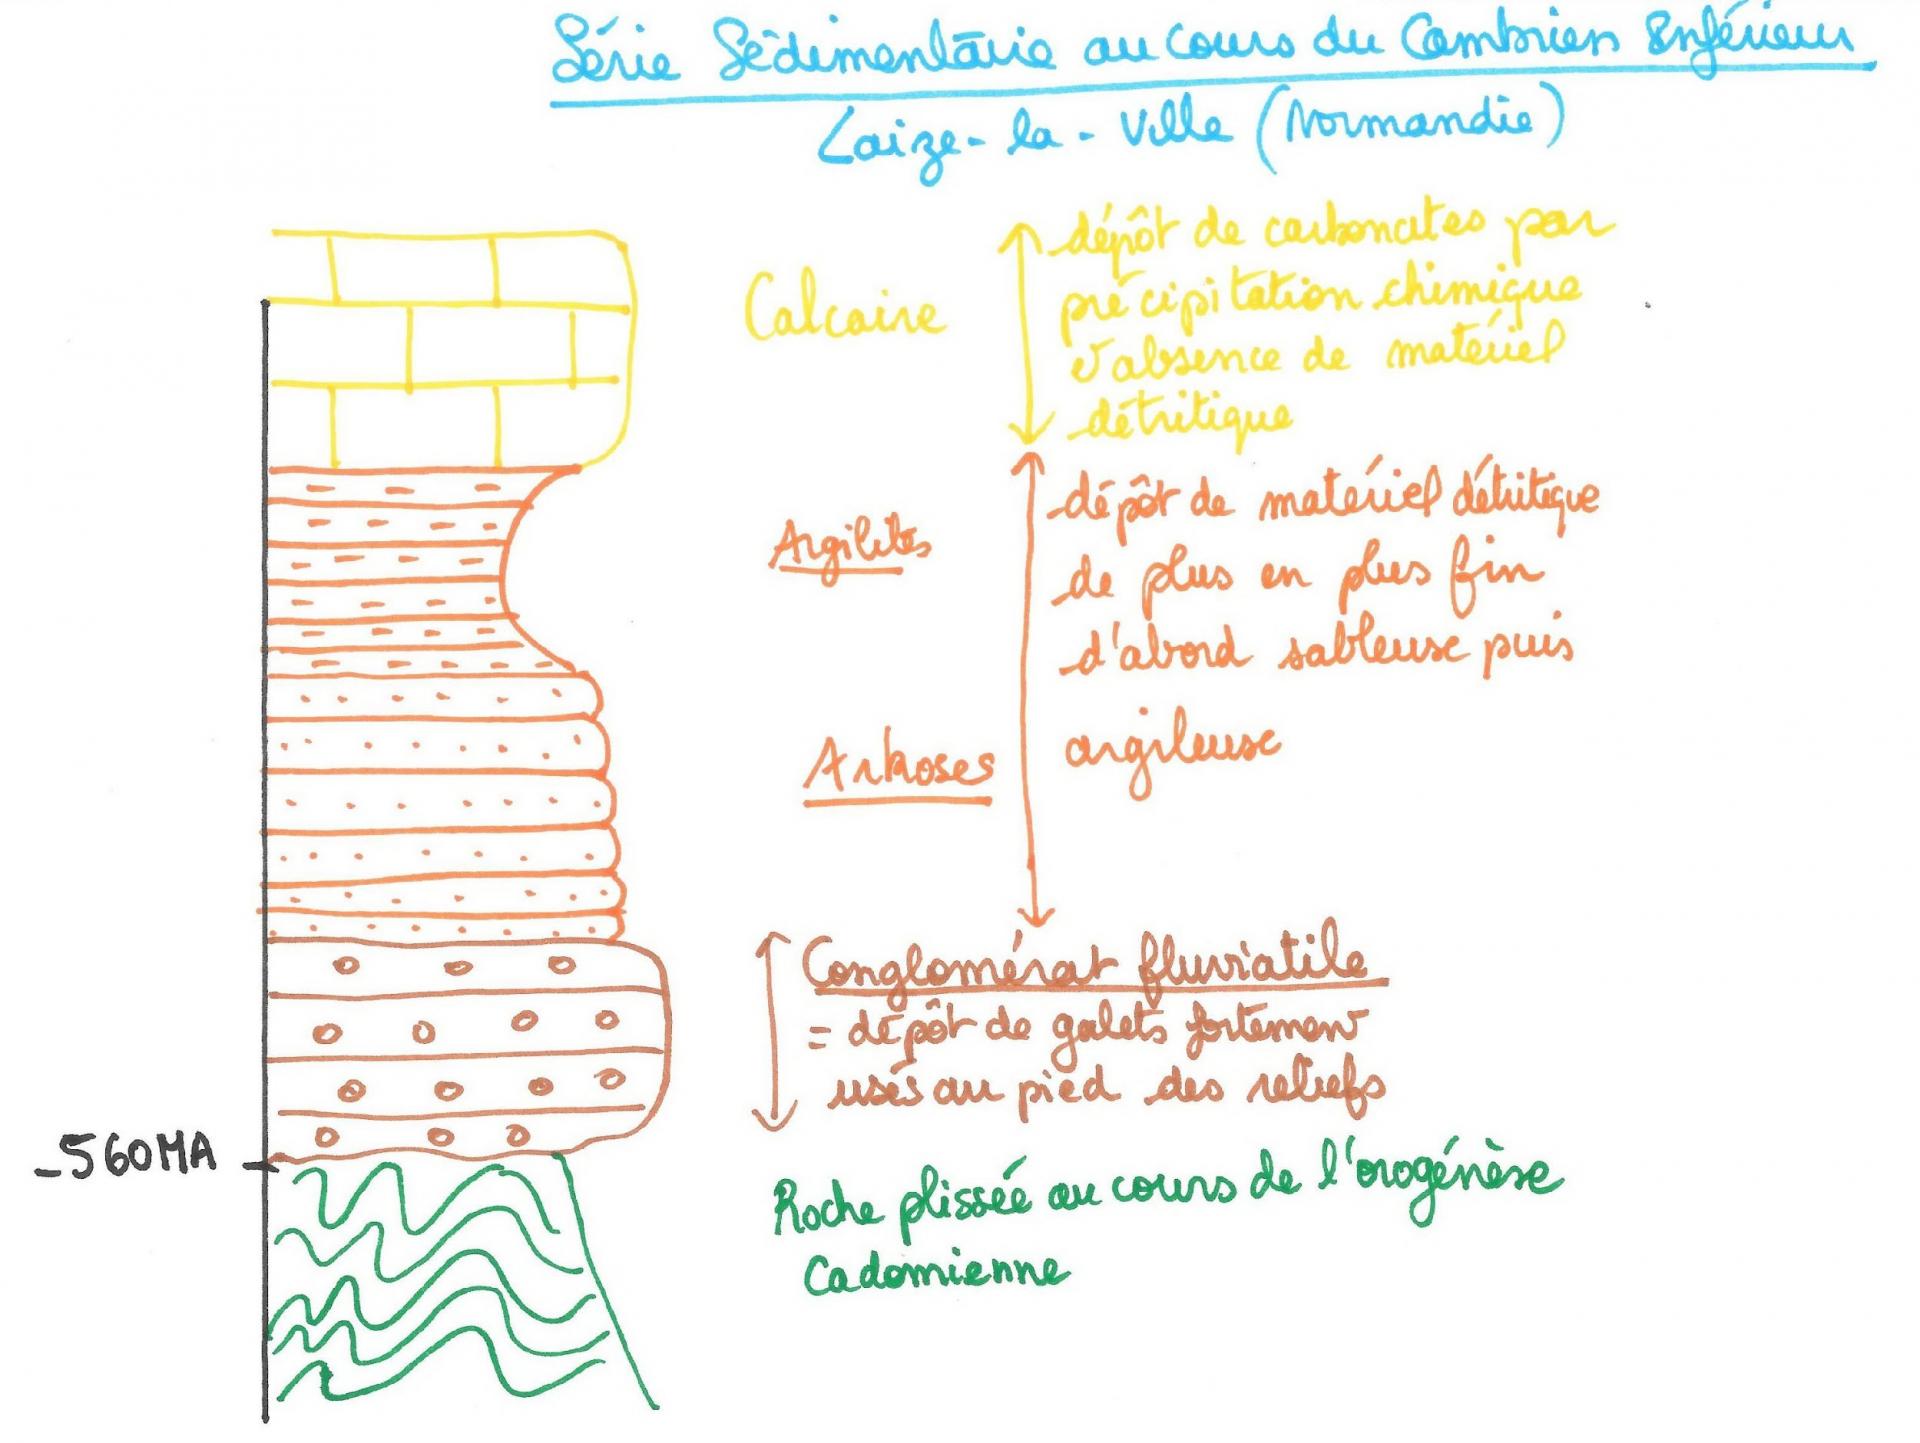 Série Sédimentaire au cours du Cambrien Inférieur
Laize-la-Ville (Normandie)
dépôt de carbonates par
précipitation chimique
d'absence de matériel
détritique
Calcaire
dépôt de matériel détritique
de plus en plus fin
d'abord sableuse puis
argileuse
Argilites
Arkoses
Conglomérat fluviatile
= dépôt de galets fortement
usés au pied des reliefs
-560MA
Roche plissée au cours de l'orogénèse
Cadomienne